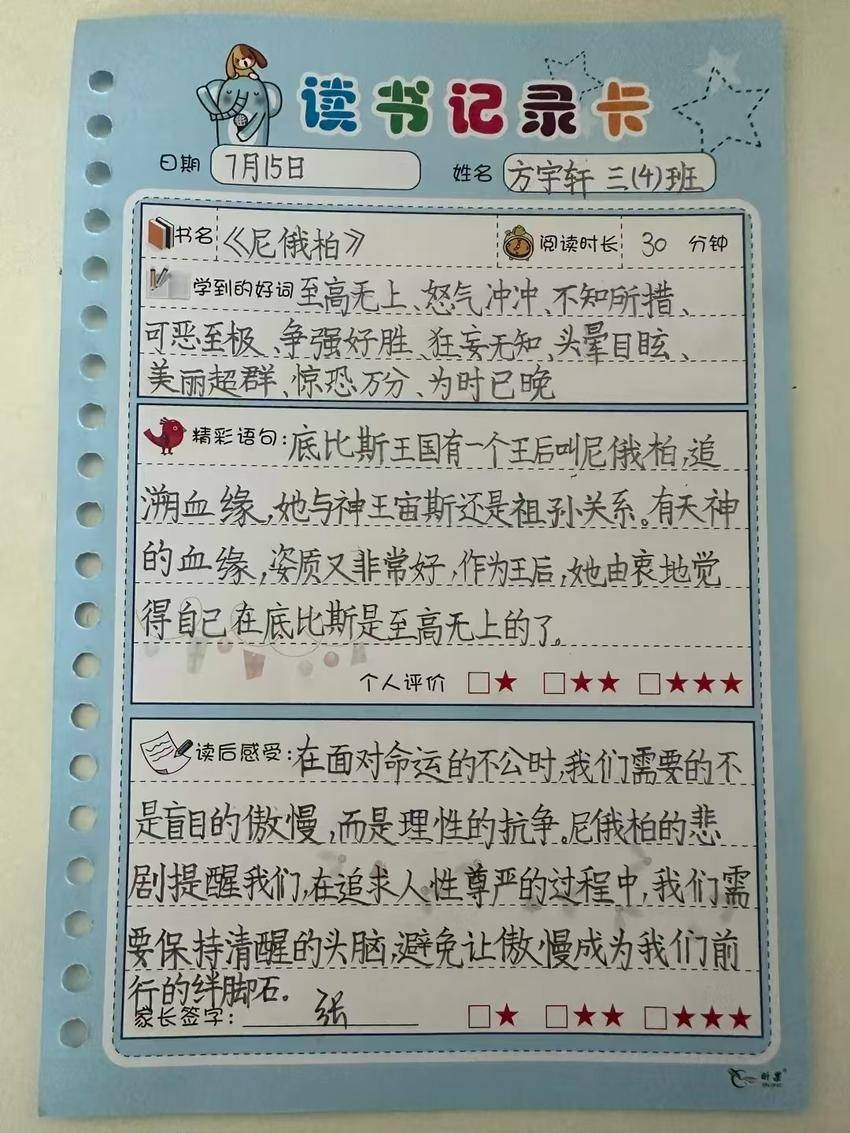 读书记录卡
日期 7月15日 姓名 方宇轩 三(4)班
书名 《尼俄柏》 阅读时长 30 分钟
学到的好词 至高无上、怒气冲冲、不知所措、
可恶至极、争强好胜、狂妄无知、头晕目眩、
美丽超群、惊恐万分、为时已晚
精彩语句:底比斯王国有一个王后叫尼俄柏,追
溯血缘,她与神王宙斯还是祖孙关系。有天神
的血缘,姿质又非常好,作为王后,她由衷地觉
得自己在底比斯是至高无上的了。
个人评价 □★ □★★ □★★★
读后感受:在面对命运的不公时,我们需要的不
是盲目的傲慢,而是理性的抗争。尼俄柏的悲
剧提醒我们,在追求人性尊严的过程中,我们需
要保持清醒的头脑,避免让傲慢成为我们前
行的绊脚石。
家长签字: 张 □★ □★★ □★★★